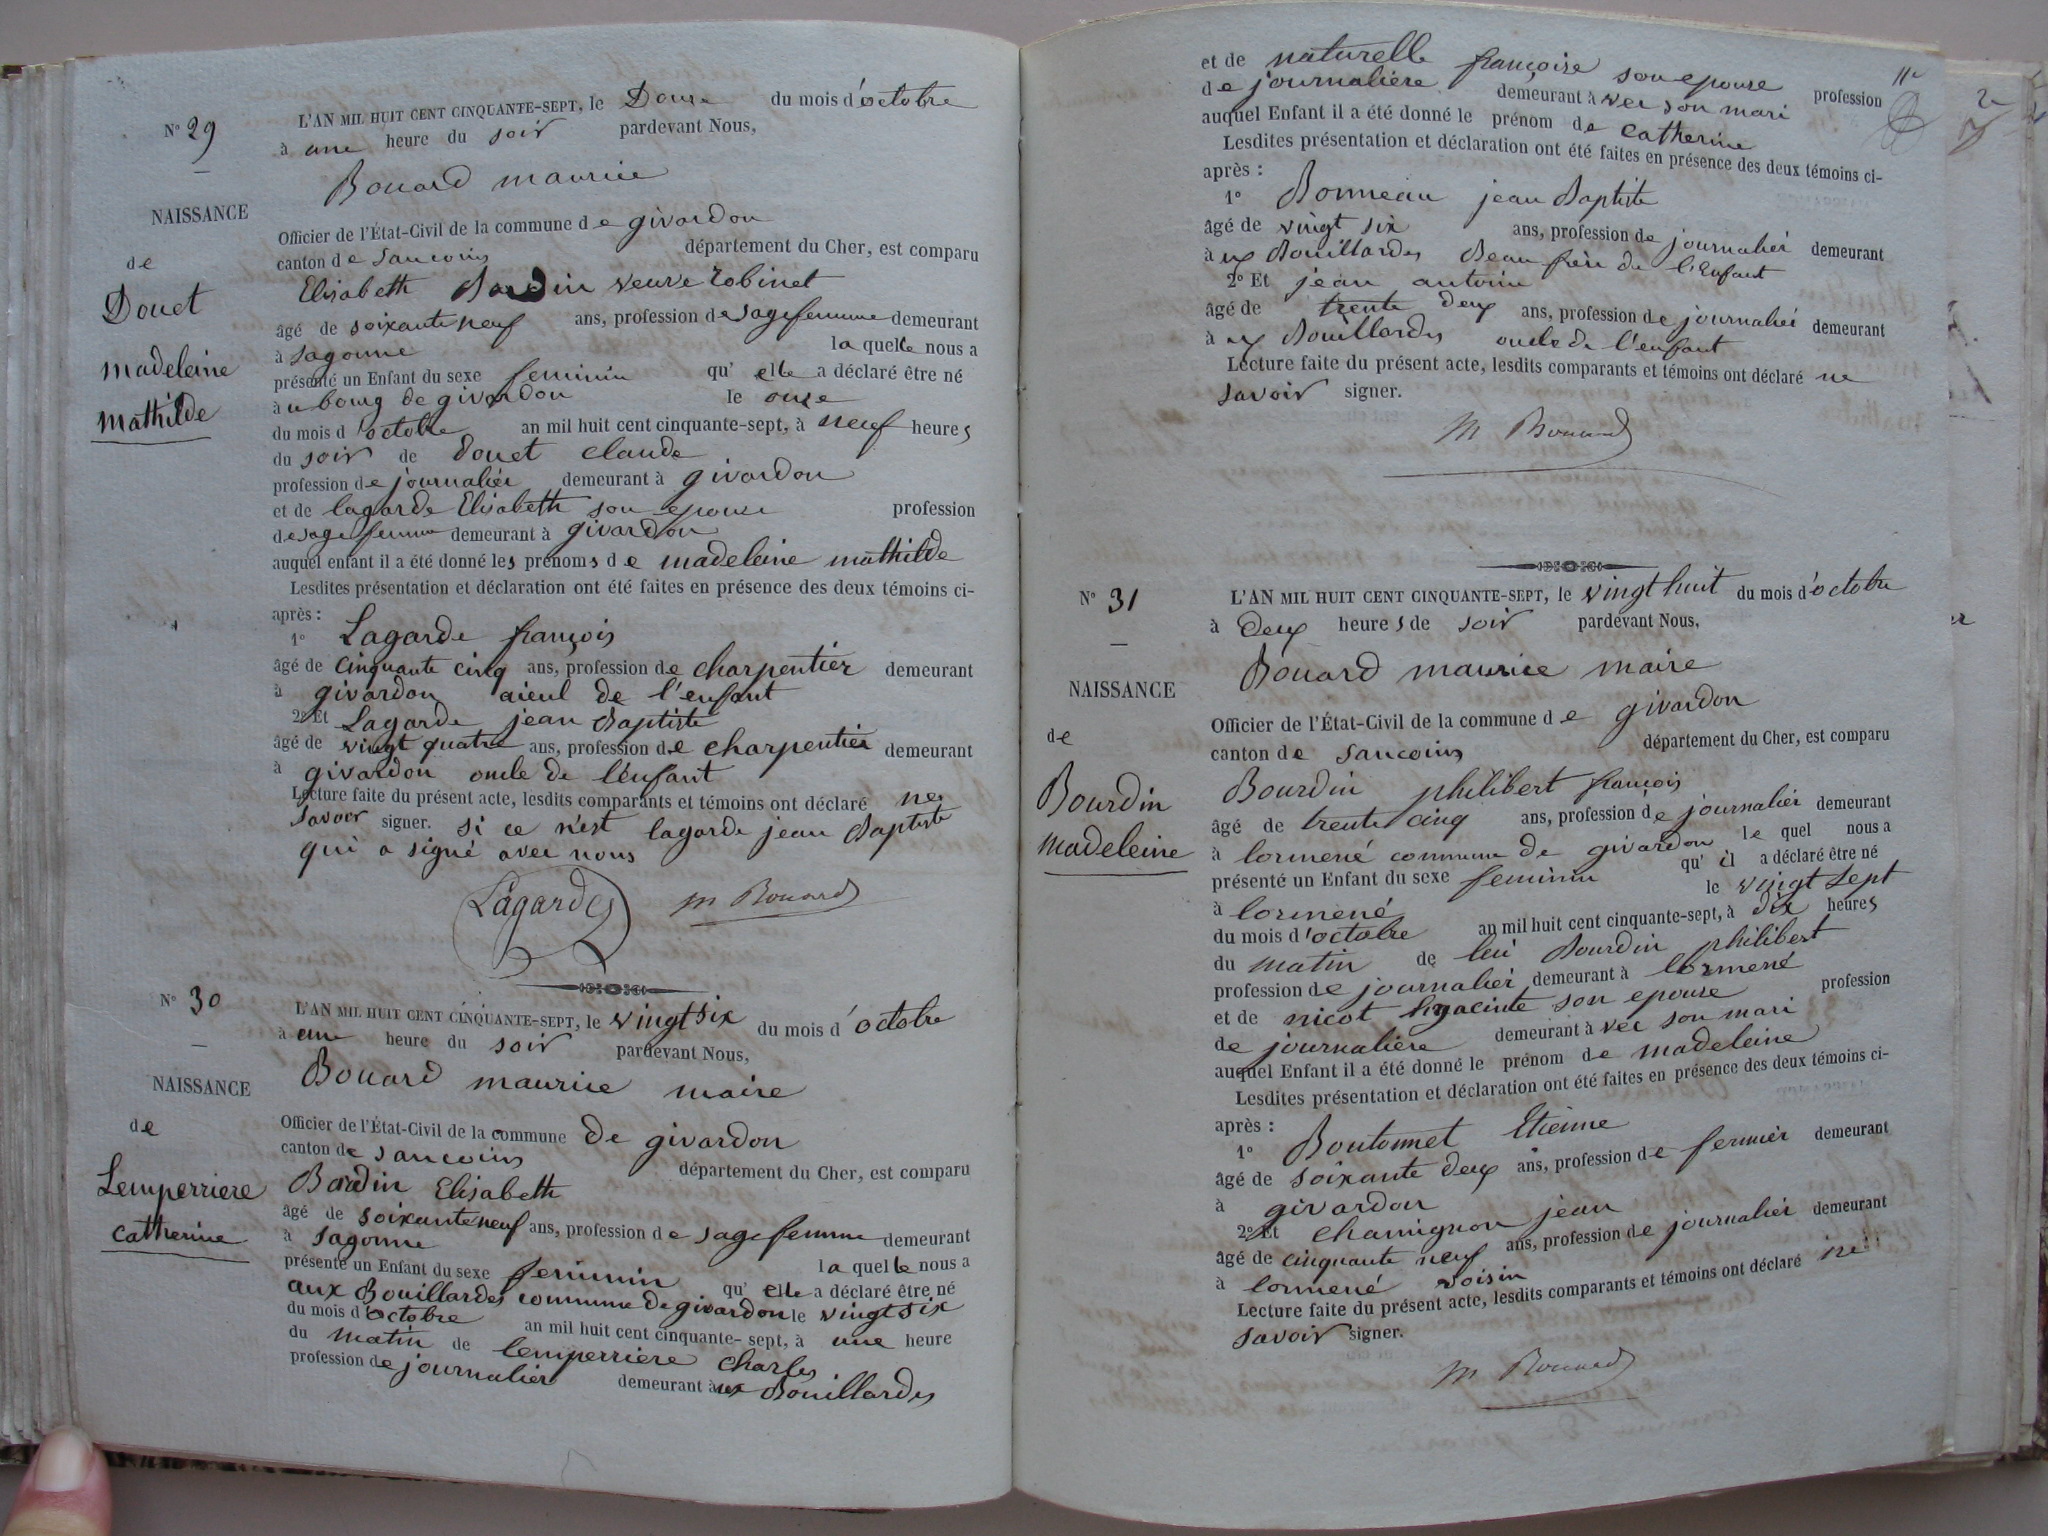 N° 29
NAISSANCE
de
Douet
madeleine
mathilde
L'AN MIL HUIT CENT CINQUANTE-SEPT, le Douze du mois d'octobre
à une heure du soir pardevant Nous,
Bouard maurice
Officier de l'État-Civil de la commune de givardon
canton de Sancoins département du Cher, est comparu
Elisabeth Bardin veuve robinet
âgé de soixante neuf ans, profession de sagefemme demeurant
à Sagonne laquelle nous a
présenté un Enfant du sexe feminin qu'elle a déclaré être né
au bourg de givardon le onze
du mois d'octobre an mil huit cent cinquante-sept, à neuf heures
du soir de Douet claude
profession de journalier demeurant à givardon
et de lagarde Elisabeth son epouse profession
de sage femme demeurant à givardon
auquel enfant il a été donné les prénoms de madeleine mathilde
Lesdites présentation et déclaration ont été faites en présence des deux témoins ci-
après :
1° Lagarde françois
âgé de cinquante cinq ans, profession de charpentier demeurant
à givardon aieul de l'enfant
2° Et Lagarde jean Baptiste
âgé de vingt quatre ans, profession de charpentier demeurant
à givardon oncle de l'enfant
Lecture faite du présent acte, lesdits comparants et témoins ont déclaré ne
savoir signer. si ce n'est lagarde jean Baptiste
qui a signé avec nous
Lagarde m Bouard
N° 30
NAISSANCE
de
Lemperriere
catherine
L'AN MIL HUIT CENT CINQUANTE-SEPT, le vingt six du mois d'octobre
à une heure du soir pardevant Nous,
Bouard maurice maire
Officier de l'État-Civil de la commune de givardon
canton de Sancoins département du Cher, est comparu
Bardin Elisabeth
âgé de soixante neuf ans, profession de sage femme demeurant
à Sagonne laquelle nous a
présenté un Enfant du sexe feminin qu'elle a déclaré être né
aux Bouillardes commune de givardon le vingt six
du mois d'octobre an mil huit cent cinquante-sept, à une heure
du matin de lemperriere charles
profession de journalier demeurant aux Bouillardes
et de naturelle françoise son epouse profession
de journalière demeurant avec son mari
auquel Enfant il a été donné le prénom de catherine
Lesdites présentation et déclaration ont été faites en présence des deux témoins ci-
après :
1° Bonneau jean Baptiste
âgé de vingt six ans, profession de journalier demeurant
aux Bouillardes Beau frère de l'Enfant
2° Et jean antoine
âgé de trente deux ans, profession de journalier demeurant
aux Bouillardes oncle de l'enfant
Lecture faite du présent acte, lesdits comparants et témoins ont déclaré ne
savoir signer.
m Bouard
N° 31
NAISSANCE
de
Bourdin
madeleine
L'AN MIL HUIT CENT CINQUANTE-SEPT, le vingt huit du mois d'octobre
à deux heures de soir pardevant Nous,
Bouard maurice maire
Officier de l'État-Civil de la commune de givardon
canton de Sancoins département du Cher, est comparu
Bourdin philibert françois
âgé de trente cinq ans, profession de journalier demeurant
à lormené commune de givardon lequel nous a
présenté un Enfant du sexe feminin qu'il a déclaré être né
à lormené le vingt sept
du mois d'octobre an mil huit cent cinquante-sept, à dix heures
du matin de lui Bourdin philibert
profession de journalier demeurant à lormené
et de nicot hyacinte son epouse profession
de journalière demeurant avec son mari
auquel Enfant il a été donné le prénom de madeleine
Lesdites présentation et déclaration ont été faites en présence des deux témoins ci-
après :
1° Boutonnet Etienne
âgé de soixante deux ans, profession de fermier demeurant
à givardon
2° Et chamignon jean
âgé de cinquante neuf ans, profession de journalier demeurant
à lormené voisin
Lecture faite du présent acte, lesdits comparants et témoins ont déclaré ne
savoir signer.
m Bouard